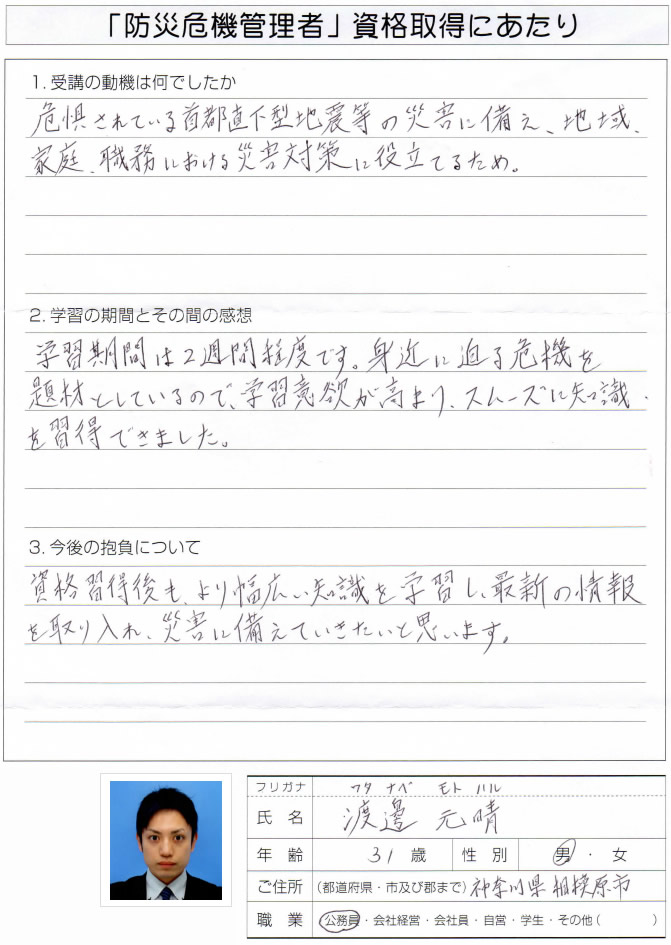 「防災危機管理者」資格取得にあたり
1.受講の動機は何でしたか
危惧されている首都直下型地震等の災害に備え、地域、
家庭、職務における災害対策に役立てるため。
2.学習の期間とその間の感想
学習期間は2週間程度です。身近に迫る危機を
題材としているので、学習意欲が高まり、スムーズに知識
を習得できました。
3.今後の抱負について
資格習得後も、より幅広い知識を学習し、最新の情報
を取り入れ、災害に備えていきたいと思います。
フリガナ ワタナベ モトハル
氏名 渡邉 元晴
年齢 31歳 性別 男・女
ご住所 (都道府県・市及び郡まで) 神奈川県相模原市
職業 公務員・会社経営・会社員・自営・学生・その他( )